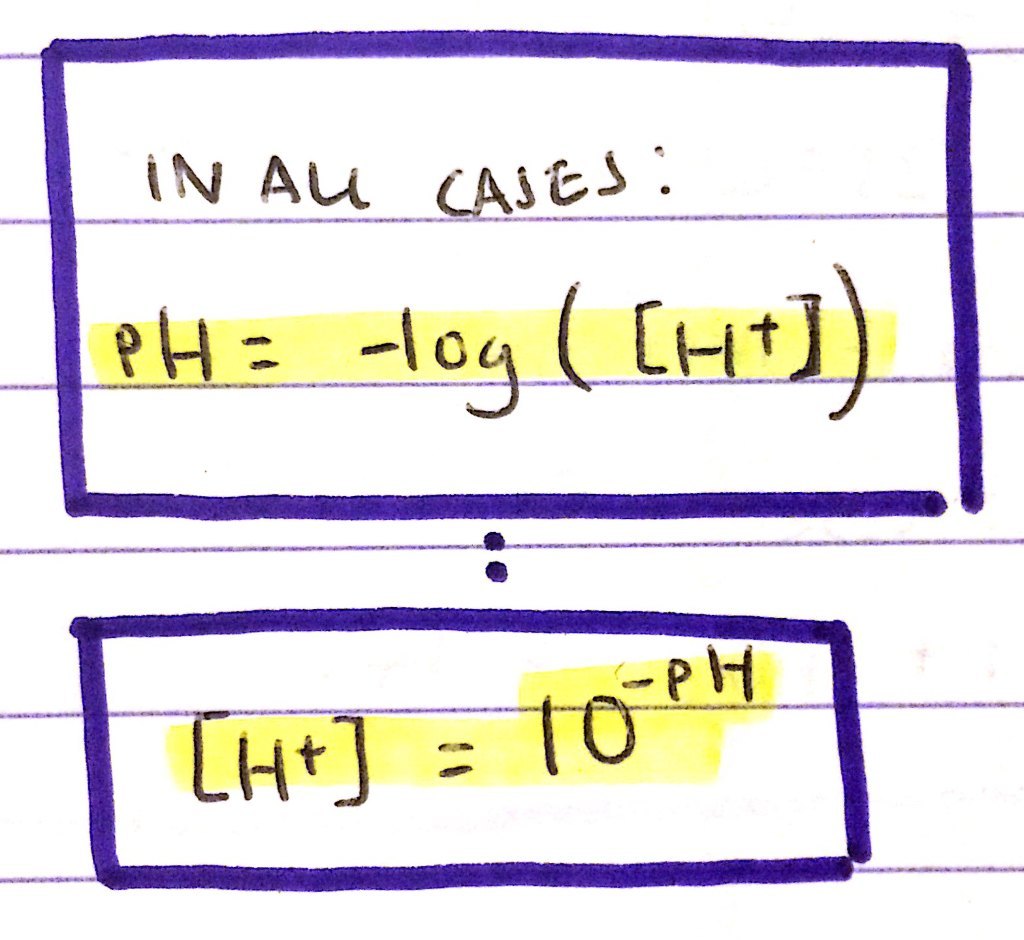 IN ALL CASES:
pH = -log([H+])
:
[H+] = 10^-pH